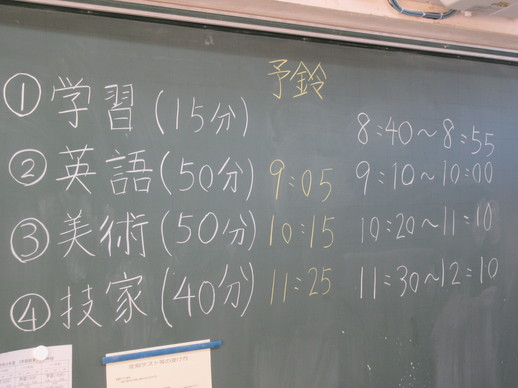 予鈴
①学習(15分) 8:40～8:55
②英語(50分) 9:05 9:10～10:00
③美術(50分) 10:15 10:20～11:10
④技家(40分) 11:25 11:30～12:10